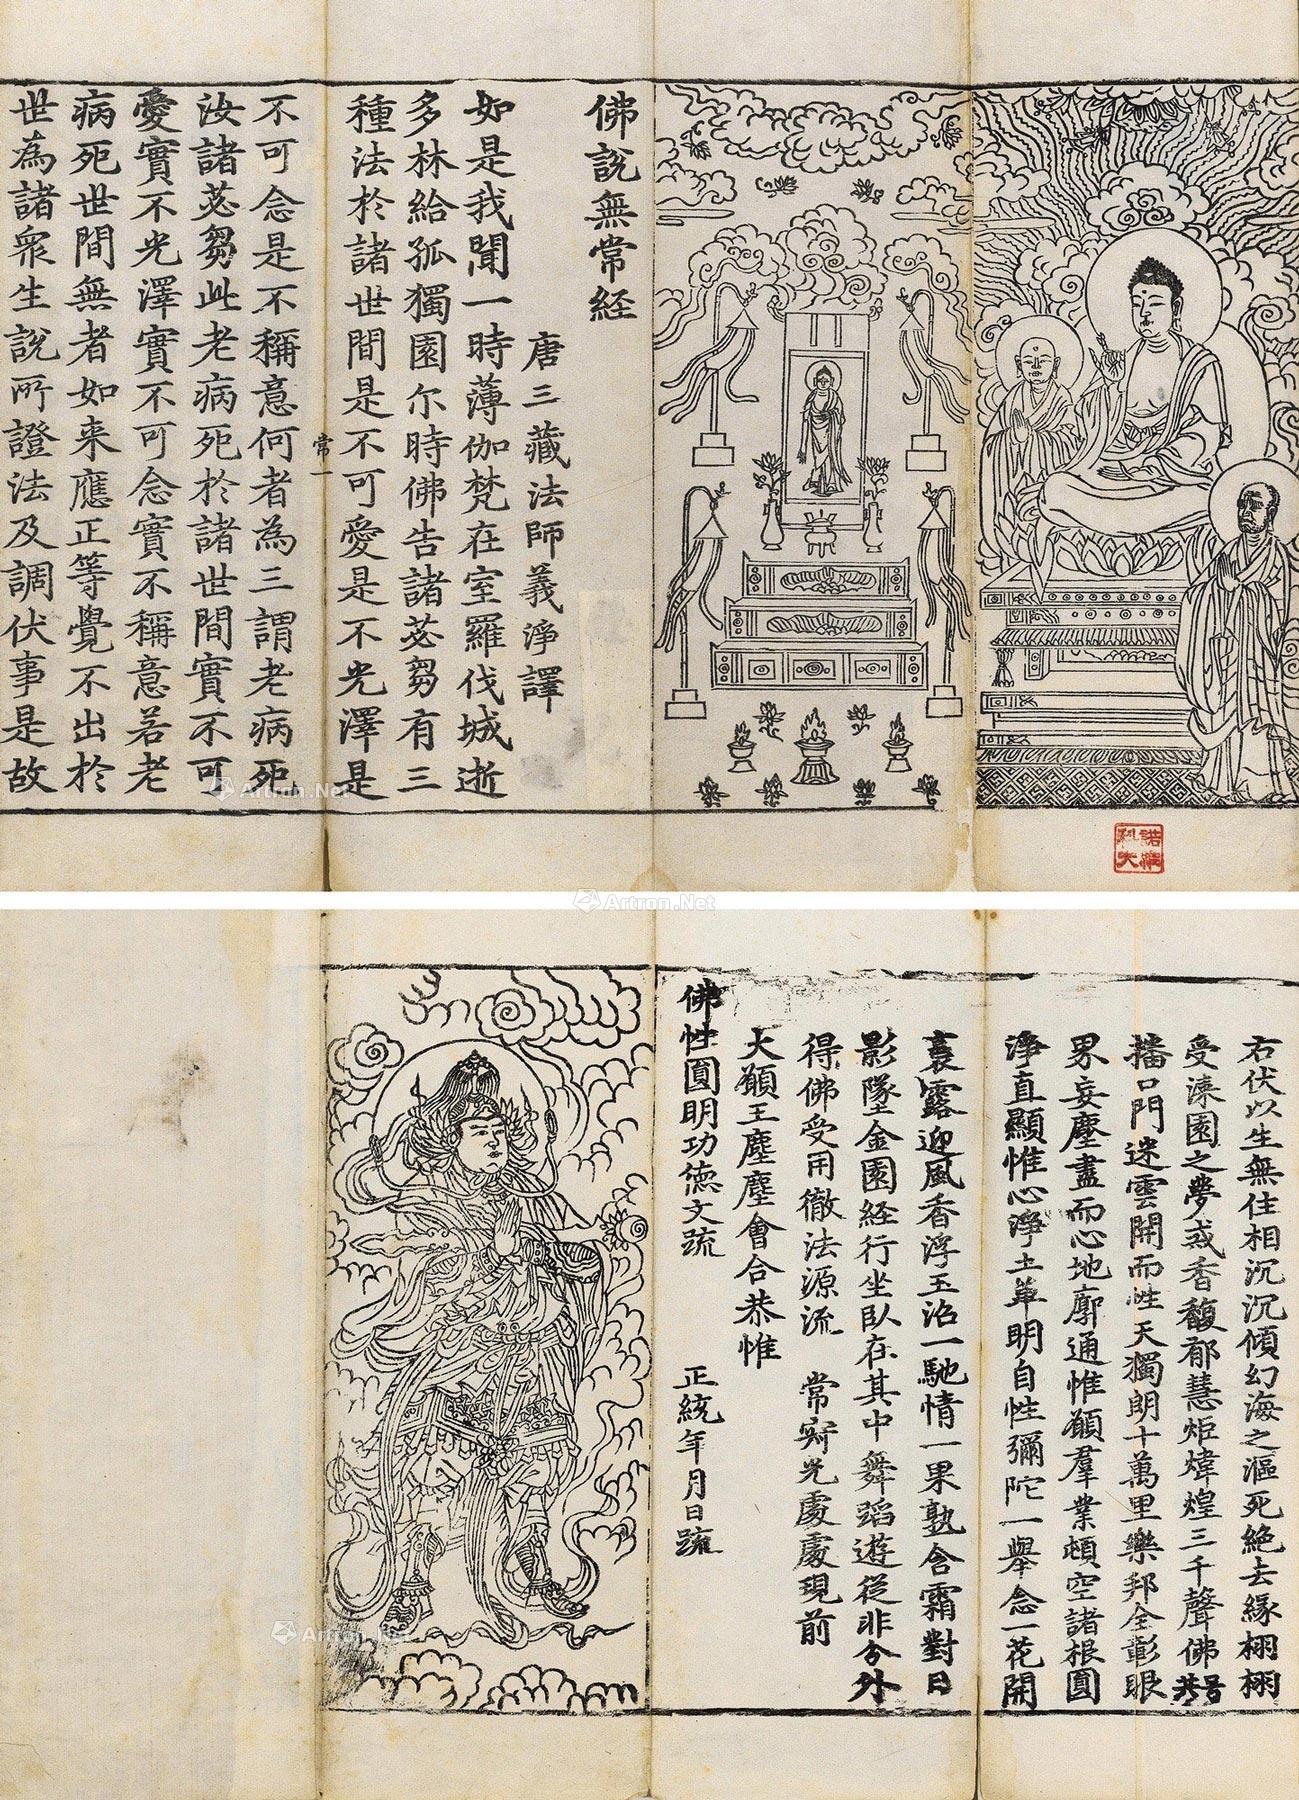 佛說無常經
唐三藏法師義淨譯
如是我聞一時薄伽梵在室羅伐城逝
多林給孤獨園尓時佛告諸苾芻有三
種法於諸世間是不可愛是不光澤是
常一
不可念是不稱意何者為三謂老病死
汝諸苾芻此老病死於諸世間實不可
愛實不光澤實不可念實不稱意若老
病死世間無者如来應正等覺不出於
世為諸衆生說所證法及調伏事是故
Artron.Net
Artron.Net
右伏以生無住相沉沉傾幻海之漚死絶去緣栩栩
受溱園之夢或香馥郁慧炬煒煌三千聲佛號共
播口門迷雲開而性天獨朗十萬里樂邦全彰眼
界妄塵盡而心地廓通惟願羣業頓空諸根圓
淨直顯惟心淨土革明自性彌陀一舉念一花開
裛露迎風香浮玉沼一馳情一果熟含霜對日
影墜金園経行坐臥在其中舞蹈遊從非分外
得佛受用徹法源流　常寂光處處現前
大願王塵塵會合恭惟
佛性圓明功德文疏　正統年月日疏
Artron.Net